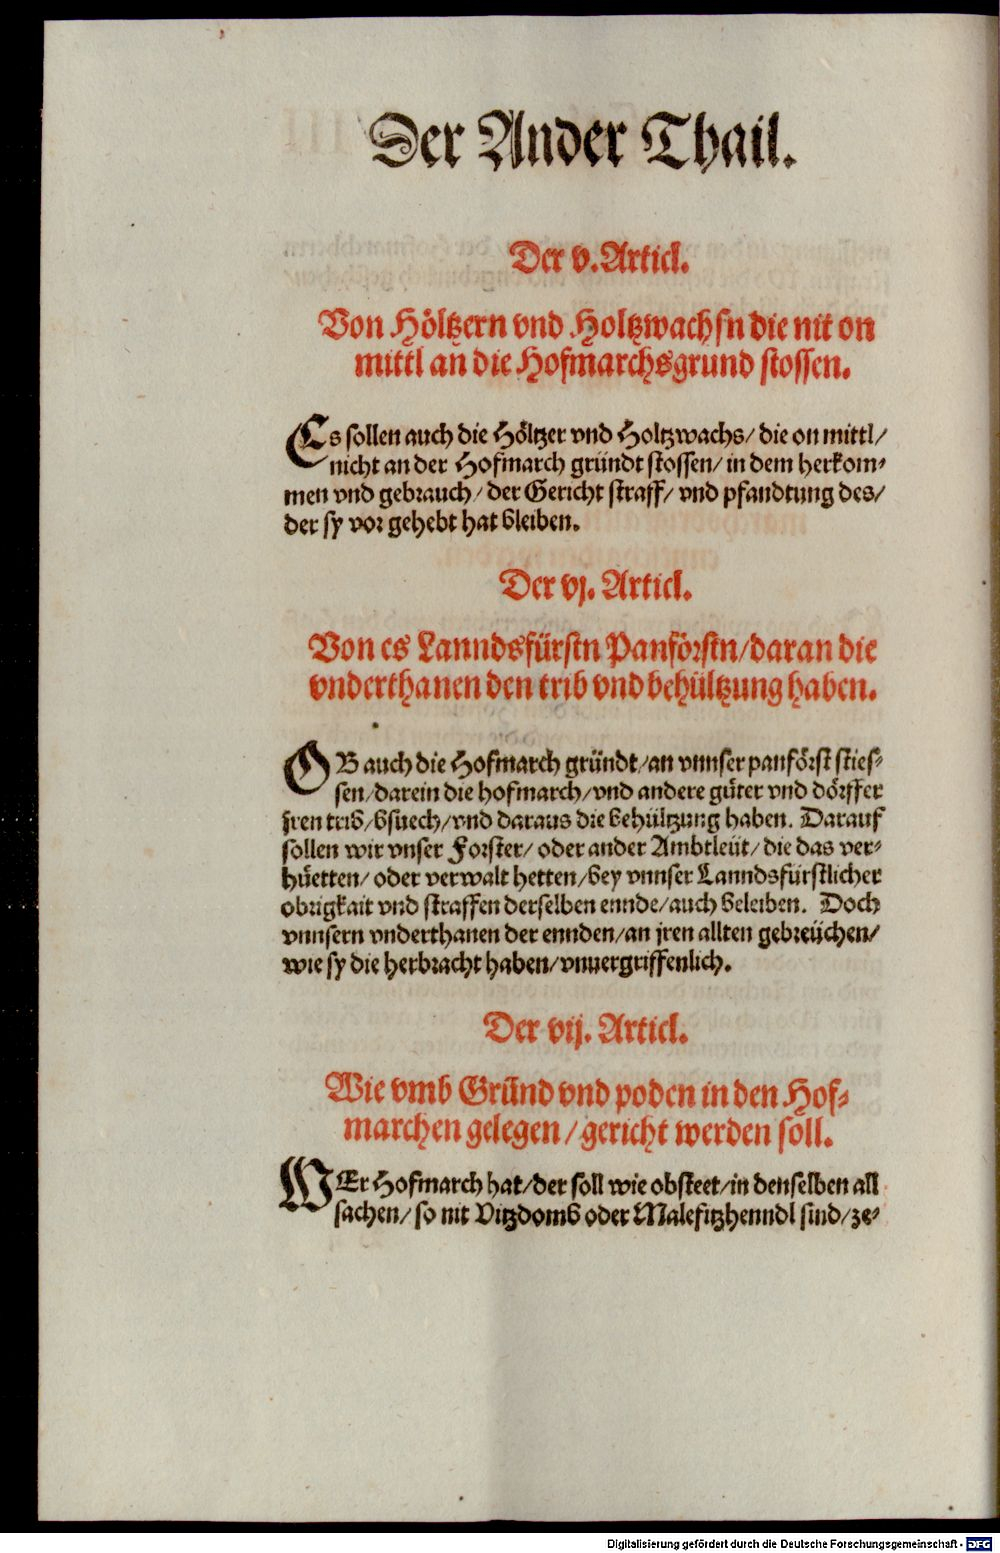 Der Ander Thail.
Der v. Artickl.
Von Höltzern vnd Holtzwachsn die nit on
mittl an die Hofmarchsgrund stossen.
Es sollen auch die Höltzer vnd Holtzwachs/ die on mittl/
nicht an der Hofmarch gründt stossen/ in dem herkom-
men vnd gebrauch/ der Gericht straff/ vnd pfandtung des/
der sy vor gehebt hat bleiben.
Der vj. Artickl.
Von es Lanndsfürstn Panförstn/ daran die
vnderthanen den trib vnd behültzung haben.
OB auch die Hofmarch gründt/ an vnnser panförst sties-
sen/ darein die hofmarch/ vnd andere güter vnd dörffer
jren trib/ bsuech/ vnd daraus die behültzung haben. Darauf
sollen wir vnser Forster/ oder ander Ambtleüt/ die das ver-
hüetten/ oder verwalt hetten/ bey vnnser Lanndsfürstlicher
obrigkait vnd straffen derselben ennde/ auch beleiben. Doch
vnnsern vnderthanen der ennden/ an jren allten gebreüchen/
wie sy die herbracht haben/ vnuergriffenlich.
Der vij. Artickl.
Wie vmb Gründ vnd poden in den Hof-
marchen gelegen/ gericht werden soll.
WEr Hofmarch hat/ der soll wie obsteet/ in denselben all
sachen/ so nit Vitzdomb oder Malefitzhenndl sind/ ze-
Digitalisierung gefördert durch die Deutsche Forschungsgemeinschaft - DFG